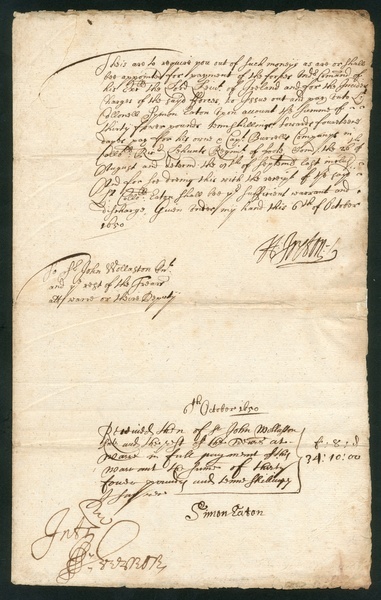 This are to require you out of such moneys as are or shall
be appointed for payment of the forces under Comand of
his Ex the Lord Lieut. of Ireland and for the
Charges of the sayd Forces, to issue out and pay unto
Collonell Symon Eaton upon account the summe of
thirty fower pounds tenn shillings towards fourteene
dayes pay for his owne & Capt Burrells Companyes in
Coll Blunts Regiment of foote from the of
August and determ the of September last
And for soe doeing this with the receipt of the sayd
Eaton shall be yor sufficient warrant and
discharge. Given under my hand this 6th of October
1650
Ireton
To Sr John Wollaston Knt
and ye rest of the Treasrs
att warre or their Deputy
6th October 1650
Received then of Sr John Wollaston
and the rest of the at
warr in full payment of this
warrant the summe of thirty
fower pounds and tenne shillings
I say rec
£ : s : d
34 : 10 : 00
Simon Eaton